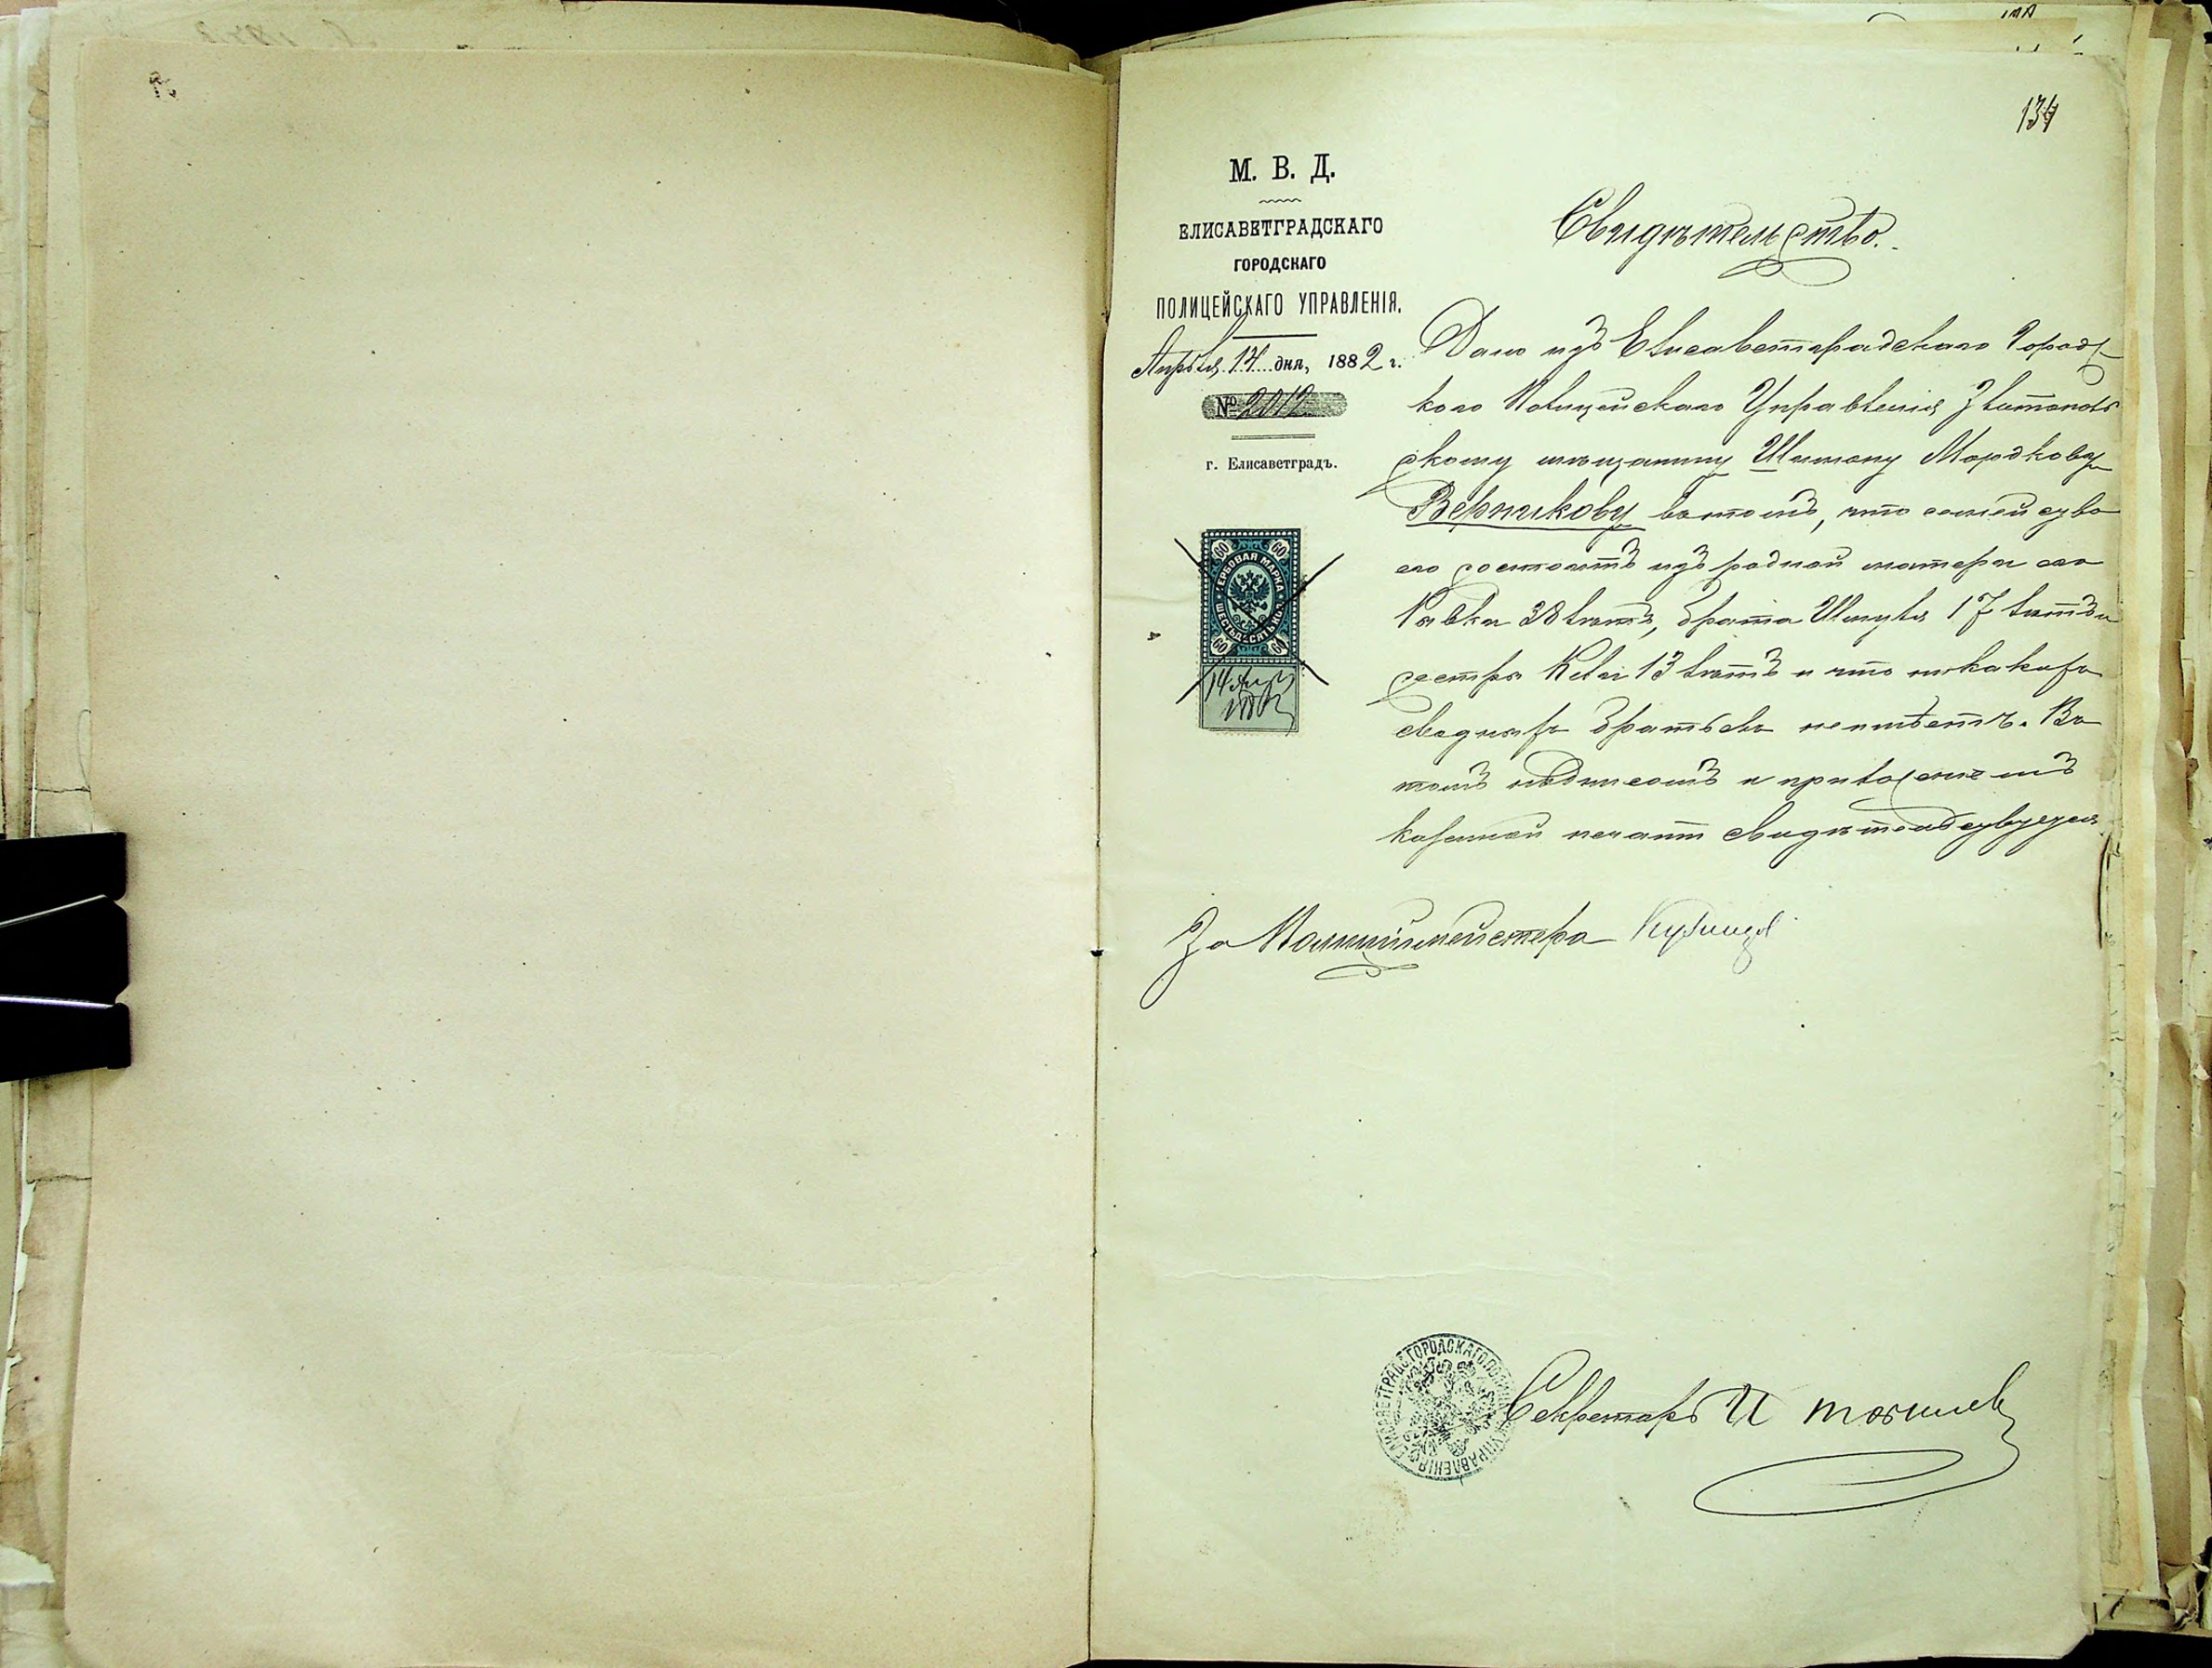 134
М. В. Д.
ЕЛИСАВЕТГРАДСКАГО
ГОРОДСКАГО
ПОЛИЦЕЙСКАГО УПРАВЛЕНІЯ.
Апрѣля 14 дня, 1882 г.
№ 2012
г. Елисаветградъ.
ГЕРБОВАЯ МАРКА
ШЕСТЬДЕСЯТЪ КОП.
60 60
60 60
14 Апр
1882
Свидѣтельство.
Дано изъ Елисаветградскаго Городс
кого Полицейскаго Управленія Златополь
скому мѣщанину Шимону Мордкову
Верникову въ томъ, что семейство
его состоитъ изъ родной матери его
Ривки 38 лѣтъ, брата Шмуля 17 лѣтъ и
сестры Кели 13 лѣтъ и что никакихъ
сводныхъ братьевъ неимѣетъ. Въ
томъ подписомъ и приложеніемъ
казенной печати свидѣтельствуется
За Полиціймейстера
Секретарь И
ЕЛИСАВЕТГРАДС. ГОРОДСКАГО ПОЛИЦ. УПРАВЛЕНІЯ